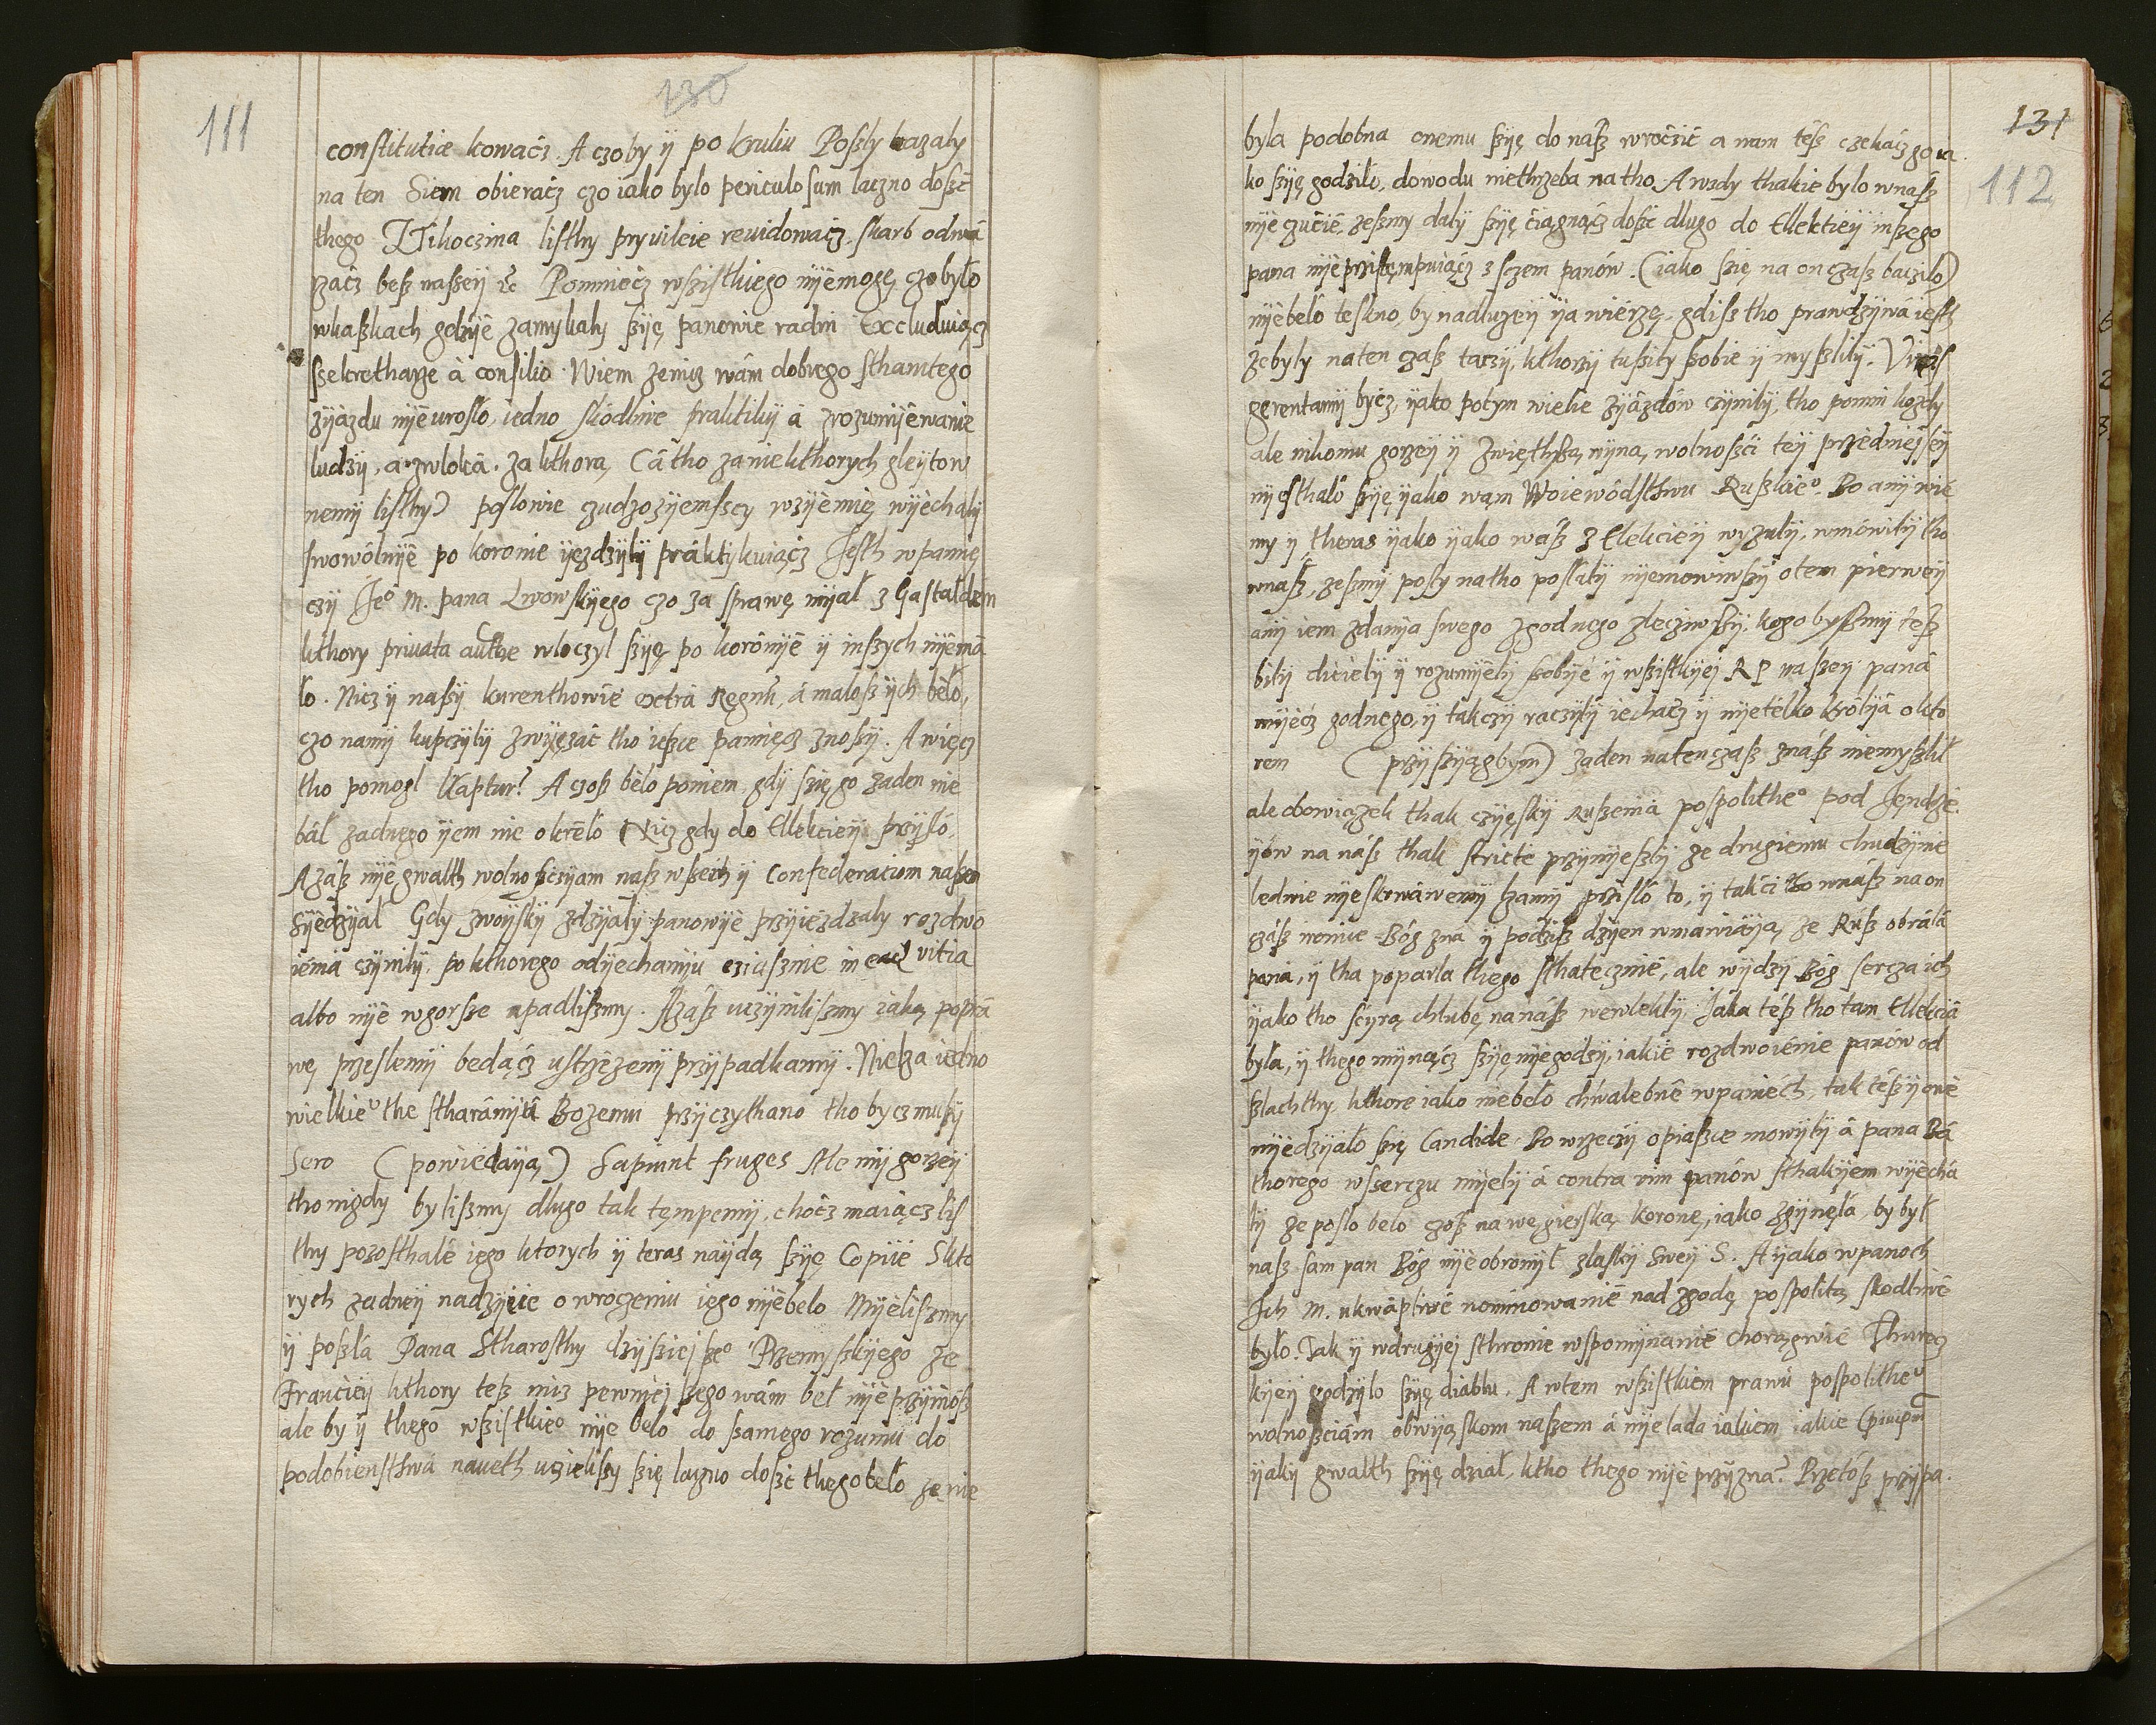 111
130
constitutiæ kowacz. A czoby ÿ po kruliu Poßly kazaly
na ten Siem obieracz czo iako bylo periculosum laczno doszć
thego Z Tikoczina listhy pryvileie reuidowacz. skarb odwa
zacz beß naszeÿ etc Pomniecz wszistkiego nÿemogę, czo bylo
wkaßkach gdzÿe zamykaly szÿę panowie radni Excluduiącz
ssekretharze à consilio. Wiem zenicz wám dobrego sthamtego
zÿazdu nÿe urosło, iedno skodliwe praktikÿ á zrozumÿewanie
ludzÿ, a zwloka. za kthorą (á tho zaniekthorych gleÿtow
nemÿ listhÿ) posłowie czudzozÿemscy wzÿemię wÿechalÿ
swowólnÿe po koronie ÿezdzÿlÿ práktÿkuiącz Jesth wpamię
czÿ Jeo M. pana Lwowskÿego czo za sprawę mÿał z Gastaldem
kthory priuata authe wloczyl szÿę po korónÿe ÿ inszych nÿemá
ło. Nicz ÿ naszÿ kurenthowie extra Regnũ, á maloß ÿch beło,
czo namÿ kupczylÿ zwÿęzać tho ieszce pamięcz znosÿ. A więcz
tho pomogl Kaptur? A czoß beło poniem, gdÿ szię go zaden nie
bał zadnego ÿem nie okreło Nicz gdy do Ellekcieÿ przÿsło,
Azáß nÿe gwałth wolnoszczÿam naß wßeth ÿ Confederaciom naßem
szÿedzÿał Gdy zwoÿskÿ zdzÿałÿ panowÿe przÿiezdzaly rozdwo
iéniá czÿnilÿ, po kthorego odÿechanÿu cziasznie in ead vitia
albo nÿe wgorsze upadliszmy. Azáß uczÿniliszmy iaką popra
wę przeslemÿ bedącz ustrzeżemÿ przÿpadkamÿ. Nielza iedno
wielkieo the stharánÿá Bozemu przÿczythano tho bycz musÿ
Sero (powiedaÿą) Sapiunt fruges Ale mÿ gorzeÿ
tho nigdy byliszmy dlugo tak tęmpemÿ, chocz maiącz lis
thy pozosthałe iego ktorych ÿ teras naÿdą szÿę Copiie Skto
rych zadneÿ nadzÿeie o wroczeniu iego nÿebeło Mÿeliszmy
ÿ poßla Pana Stharosthy dzÿsiejszeo Przemyskÿego ze
Franciéÿ kthory teß nicz pewnieÿ szego wám beł nÿe przÿnoß
ale by ÿ thego wßistkieo nÿe beło do szamego rozumu do
podobiensthwá naueth uczieklszy szię laczno doszć thego beło ze nie
131
112
byla podobna onemu szÿę do naß wroczić a nam teß czekacz go ia
ko szÿę godzilo, dowodu niethrzeba na tho. A wzdy thakie bylo wnaß
nÿe czucie, zeszmy dalÿ szÿę ciągnącz doszć dlugo do Ellektieÿ inszego
pana nÿe przistęmpuiącz zszem panów. (iako szię na on czaß baczilo)
nÿebeło teskno, by nadluzeÿ ÿa wierzę, gdiß tho prawdzÿwá iesth
ze byly naten czaß taczÿ, kthorzÿ tusily szobie ÿ myszlilÿ. Vices
gerentamÿ bycz, ÿako potym wielie zÿazdów czÿnilÿ, tho pomni kozdy
ale nikomu gorzeÿ ÿ zwięthszą wÿną, wolnoszci teÿ przedniejszeÿ
nÿesthało szÿę ÿako wąm Woiewódsthwu Ruszkieo. Bo anÿ wie
my ÿ theras ÿako ÿako wáß z Ellekcieÿ wyzulÿ, wmówilÿ tho
wnaß, zeszmÿ posly natho posłalÿ nÿemowiwszÿ o tem pierweÿ
anÿ iem zdania swego zgodnego zleciwszÿ, kogo byszmÿ teß
bilÿ chcielÿ ÿ rozumÿelÿ szobÿe ÿ wßistkÿeÿ R P naszeÿ pana
mÿecz godnego, ÿ takczÿ raczÿlÿ iechacz ÿ nÿetelko królÿa o kto
rem (przÿsziągbym) zaden natenczaß znáß niemyszlił
ale obowiązek thak czÿęskÿ Rußenia pospolitheo pod Jendrze
ÿów na náß thak stricte przÿnÿeszlÿ ze drugiemu chudzÿnie
ledwie nÿeskrwawemÿ łzamÿ prziszło to, ÿ takci to wnáß na on
czáß nowie Bóg zna ÿ podziß dzÿen wmawiaÿą, ze Ruß obrała
pana, ÿ tha poparla thego sthatecznie, ale wÿdzÿ Bóg sercza ich
ÿako tho scyrą chlubę nanáß newleklÿ. Jáka téß tho tam Ellekcia
była, ÿ thego mÿnącz szÿę nÿegodzÿ, iakie rozdwoiénie panów od
szlachthy, kthore iako niebeło chwalebne wpaniech, tak téß ÿ one
nÿedzÿało szię Candide. Bo wrzeczÿ o piaszce mowÿlÿ á pana Bá
thorego wsserczu mÿelÿ á contra nim panów sthakÿem wÿechá
lÿ ze poslo beło czoß na węgierską koronę, iako zgÿnęla by był
naß sam pan Bóg nÿe obronÿł zlaskÿ Sweÿ S. A ÿako wpanoch
Jch M. ukwápliwé nominowanié nad zgodę pospolitą skodliwé
było. Tak ÿ wdrugÿej sthronie wspomÿnanié chorągwie Thurecz
kÿeÿ godzÿlo szÿę diabłu. A wtem wßistkiem prawu pospolitheu
wolnoszciám obwÿąskom naßem á nÿelada iakiem iakie
ÿakÿ gwalth szÿę dział, ktho thego nÿe przÿzna? Przetóß przÿpa